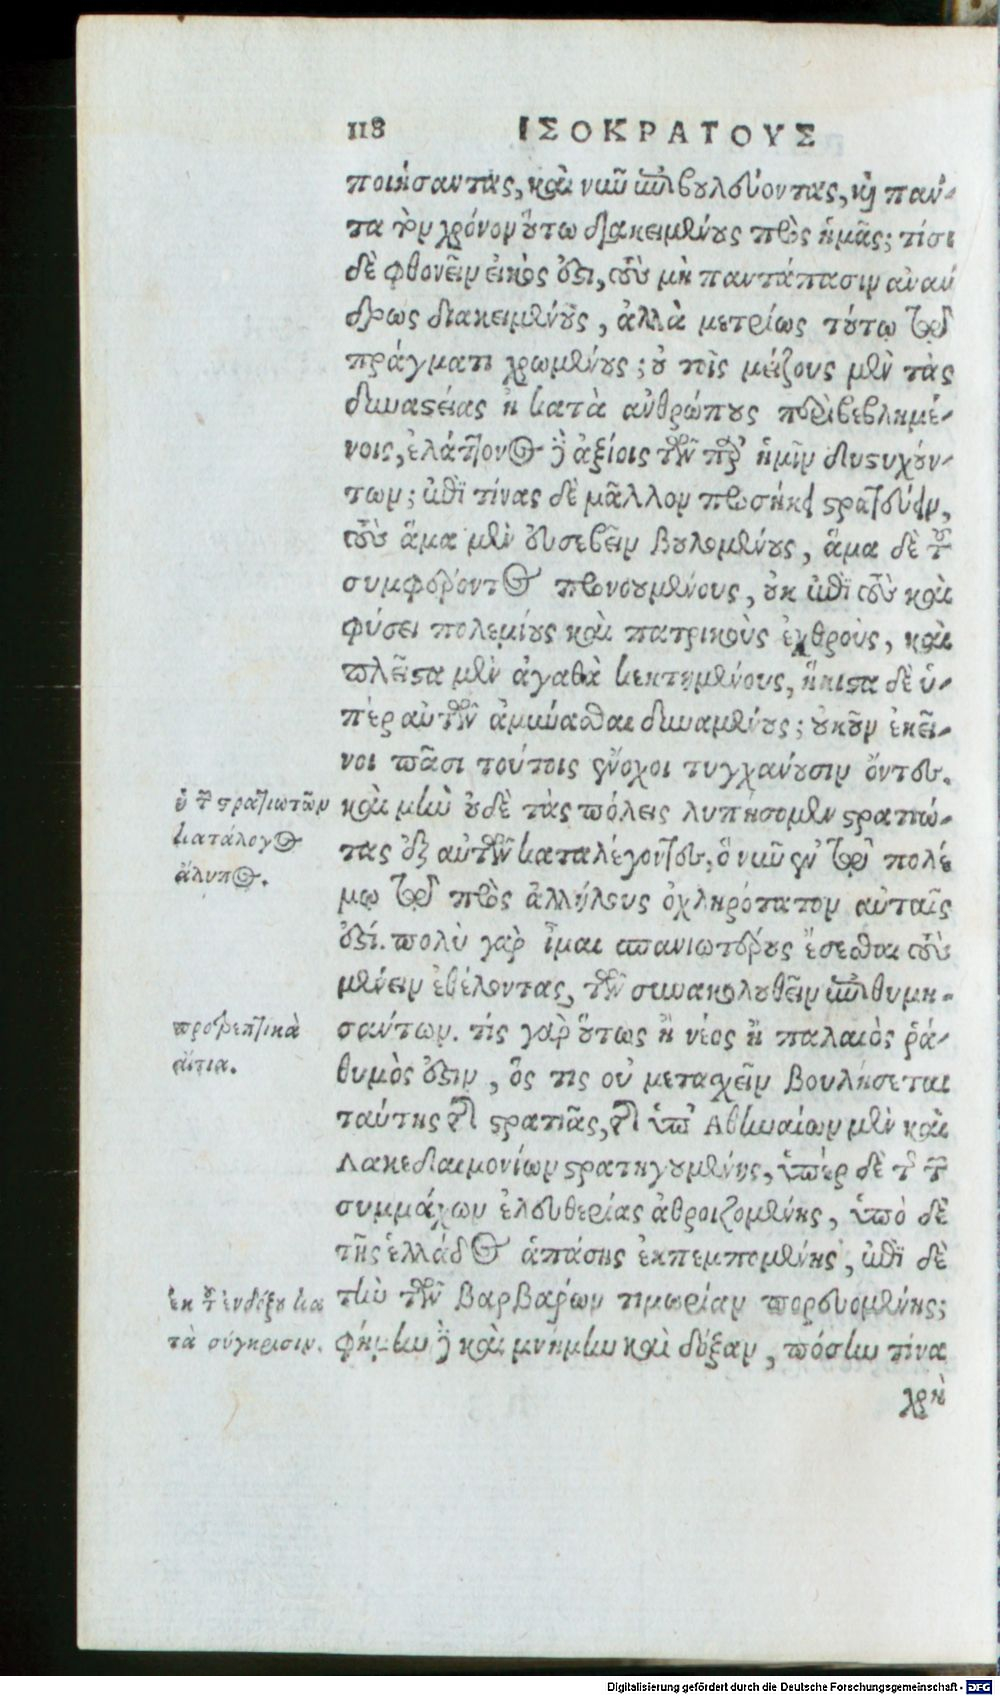 118 ΙΣΟΚΡΑΤΟΥΣ
ποιήσαντας, καὶ νῦν ἐπιβουλεύοντας, καὶ παν-
τα τὸν χρόνον οὕτω διακειμένους πρὸς ἡμᾶς; τίσι
δὲ φθονεῖν εἰκός ἐστι, τοὺς μὴ παντάπασιν ἀνάν
δρως διακειμένους, ἀλλὰ μετρίως τούτῳ τῷ
πράγματι χρωμένους; οὐ τοῖς μείζους μὲν τὰς
δυναστείας ἢ κατὰ ἀνθρώπους περιβεβλημέ-
νοις, ἐλάττονος δ' ἀξίοις τῶν παρ' ἡμῖν δυστυχούν-
των; ἐπὶ τίνας δὲ μᾶλλον προσήκει στρατεύειν,
τοὺς ἅμα μὲν εὐσεβεῖν βουλομένους, ἅμα δὲ τοῦ
συμφέροντος προνουμένους, οὐκ ἐπὶ τοὺς καὶ
φύσει πολεμίους καὶ πατρικοὺς ἐχθροὺς, καὶ
πλεῖστα μὲν ἀγαθὰ κεκτημένους, ἥκιστα δὲ ὑ-
πὲρ αὐτῶν ἀμύνασθαι δυναμένους; οὐκοῦν ἐκεῖ-
νοι πᾶσι τούτοις ἔνοχοι τυγχάνουσιν ὄντες.
καὶ μὴν οὐδὲ τὰς πόλεις λυπήσομεν στρατιώ-
τας ἐξ αὐτῶν καταλέγοντες, ὃ νῦν ἐν τῷ πολέ
μῳ τῷ πρὸς ἀλλήλους ὀχληρότατον αὐταῖς
ἐστί. πολὺ γὰρ οἶμαι σπανιωτέρους ἔσεσθαι τοὺς
μένειν ἐθέλοντας, τῶν συνακολουθεῖν ἐπιθυμη-
σάντων. τίς γὰρ οὕτως ἢ νέος ἢ παλαιὸς ῥά-
θυμός ἐστιν, ὅς τις οὐ μετασχεῖν βουλήσεται
ταύτης τῆς στρατιᾶς, τῆς ὑπ' Ἀθηναίων μὲν καὶ
Λακεδαιμονίων στρατηγουμένης, ὑπὲρ δὲ τῆς τῶν
συμμάχων ἐλευθερίας ἀθροιζομένης, ὑπὸ δὲ
τῆς ἑλλάδος ἁπάσης ἐκπεμπομένης, ἐπὶ δὲ
τὴν τῶν βαρβάρων τιμωρίαν πορευομένης;
φήμην δὲ καὶ μνήμην καὶ δόξαν, πόσην τίνα
χρὴ
ὁ τῶν στρατιωτῶν
κατάλογος
ἄλυπος.
προτρεπτικὰ
αἴτια.
ἐκ τοῦ ἐνδόξου κα
τὰ σύγκρισιν.
Digitalisierung gefördert durch die Deutsche Forschungsgemeinschaft - DFG